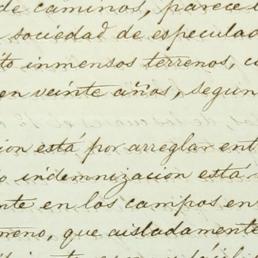 de caminos, parece l
sociedad de especulad
to inmensos terrenos, co
en veinte años, segun
ion está por arreglar ent
o indemnizacion está
nte en los campos en
rreno, que aisladamente